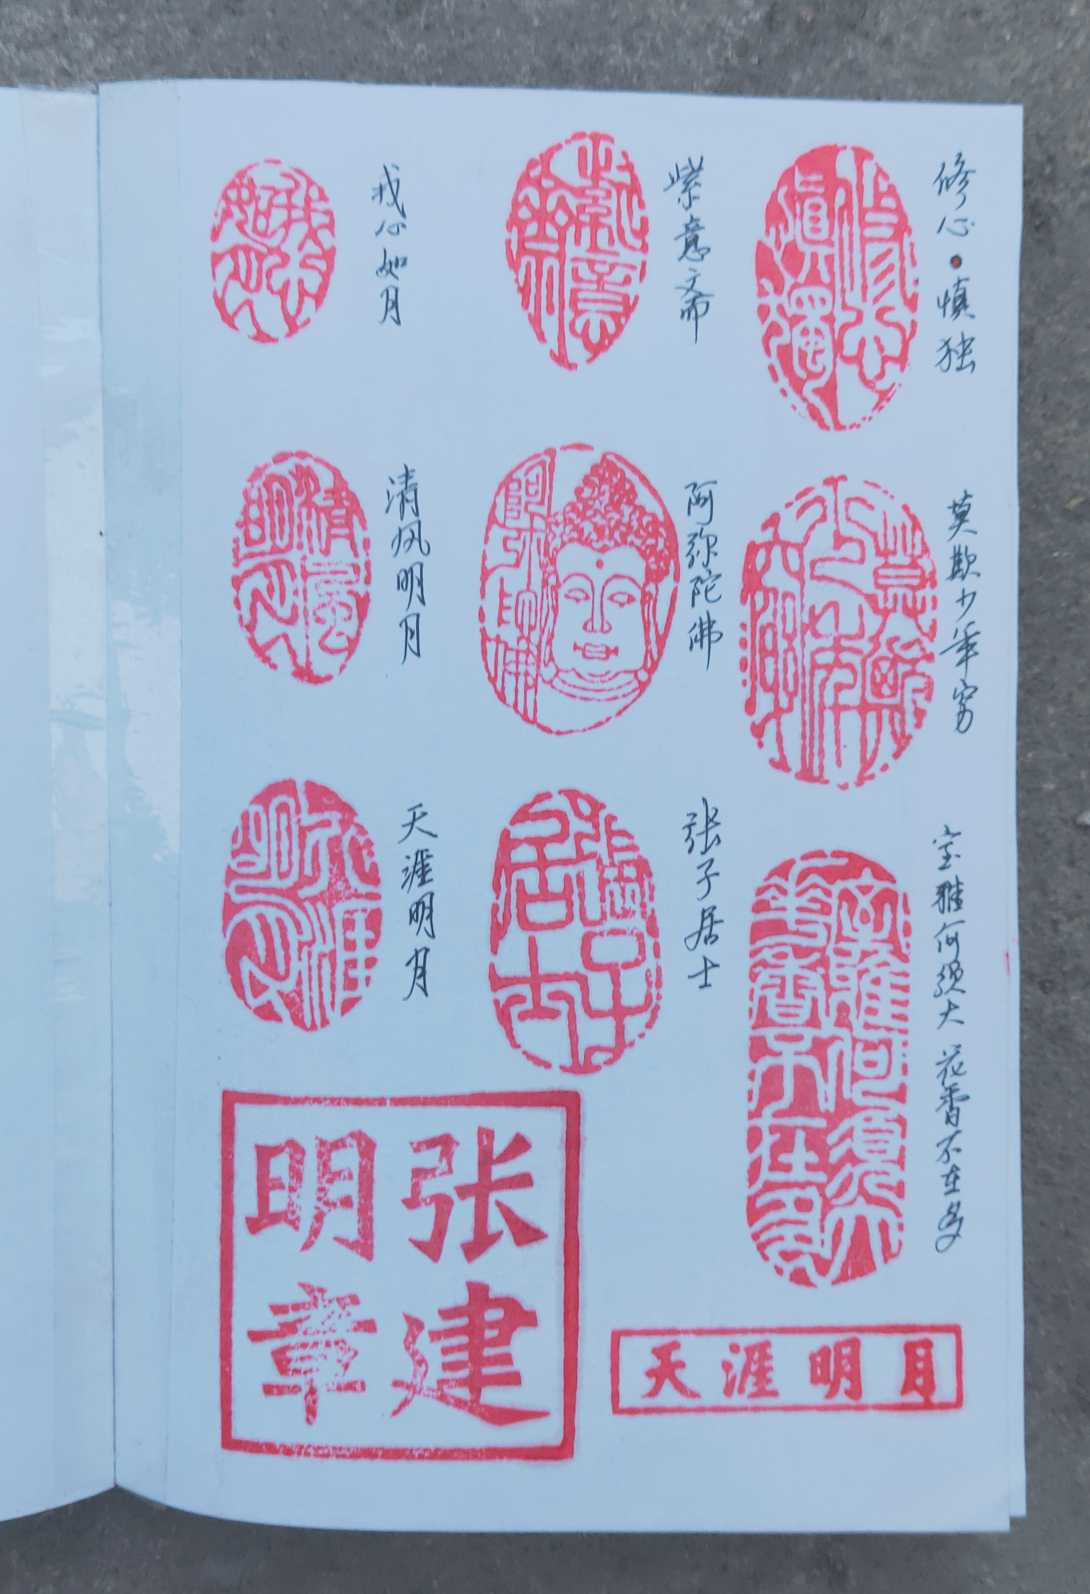 修心·慎独
紫意斋
我心如月
莫欺少年穷
阿弥陀佛
清风明月
室雅何须大 花香不在多
张子居士
天涯明月
张建
明章
天涯明月